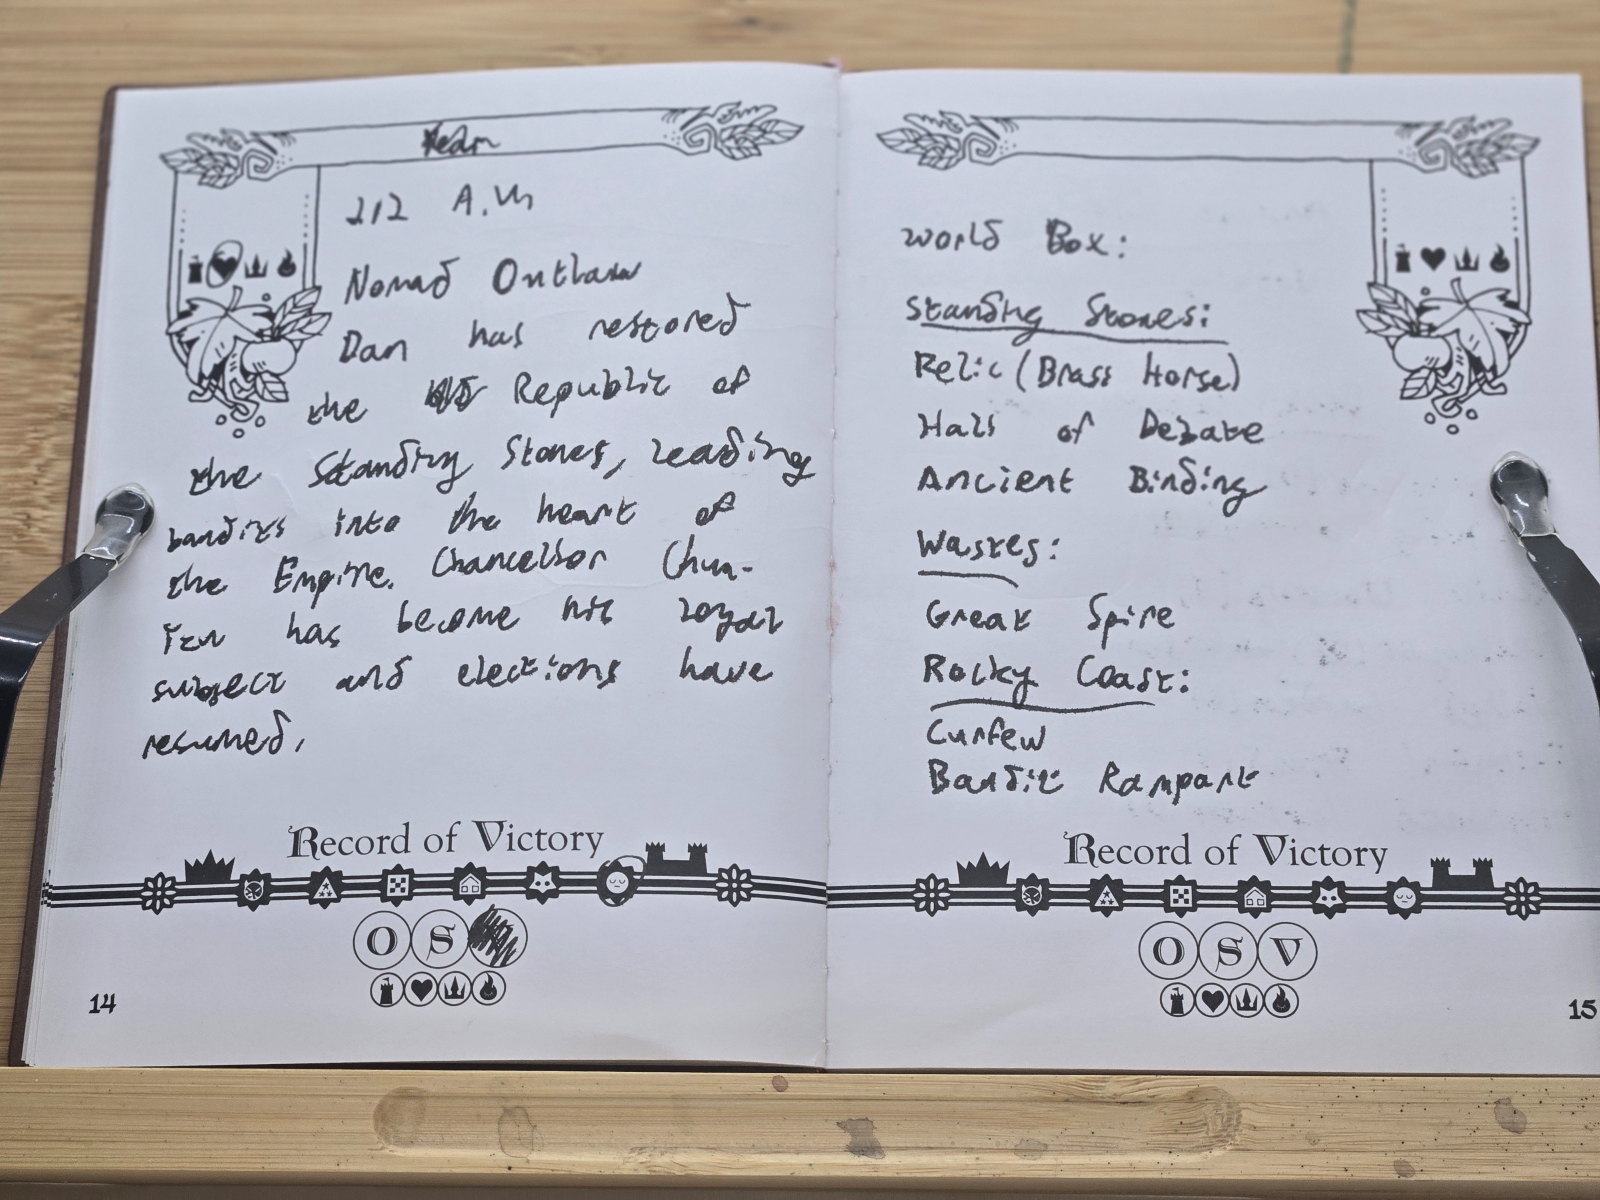 212 A.
Nomad Outlaw
Dan has restored
the Republic of
the Standing Stones, leading
bandits into the heart of
the Empire. Chancellor Chun-
Yen has become his loyal
subject and elections have
resumed.
Record of Victory
O S
14
World Box:
Standing Stones:
Relic (Brass Horse)
Hall of Debate
Ancient Binding
Wastes:
Great Spire
Rocky Coast:
Curfew
Bandit Rampart
Record of Victory
O S V
15